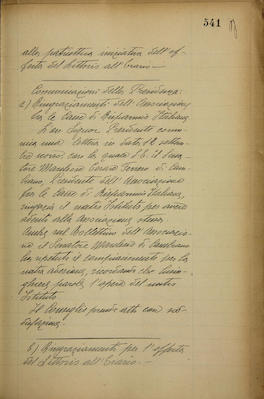 541
alla patriottica iniziativa dell'of-
ferta del Littorio all'Erario.—
Comunicazioni della Presidenza:
a) Ringraziamenti dell'Associazione
fra le Casse di Risparmio Italiane
Il Signor Presidente comu-
nica una lettera in data 12 settem-
bre con la quale S.E. il Sena-
tore Marchese
Presidente dell'Associazione
fra le Casse di Risparmio Italiane,
ringrazia il nostro Istituto per avere
aderito alla Associazione stessa.
Anche nel Bollettino dell'Associazio-
ne il Senatore Marchese
ha ripetuto il compiacimento per la
nostra adesione, ricordando con lusin-
ghiere parole l'opera del nostro
Istituto.
Il Consiglio prende atto con sod-
disfazione.
b) Ringraziamento per l'offerta
del Littorio all'Erario.—